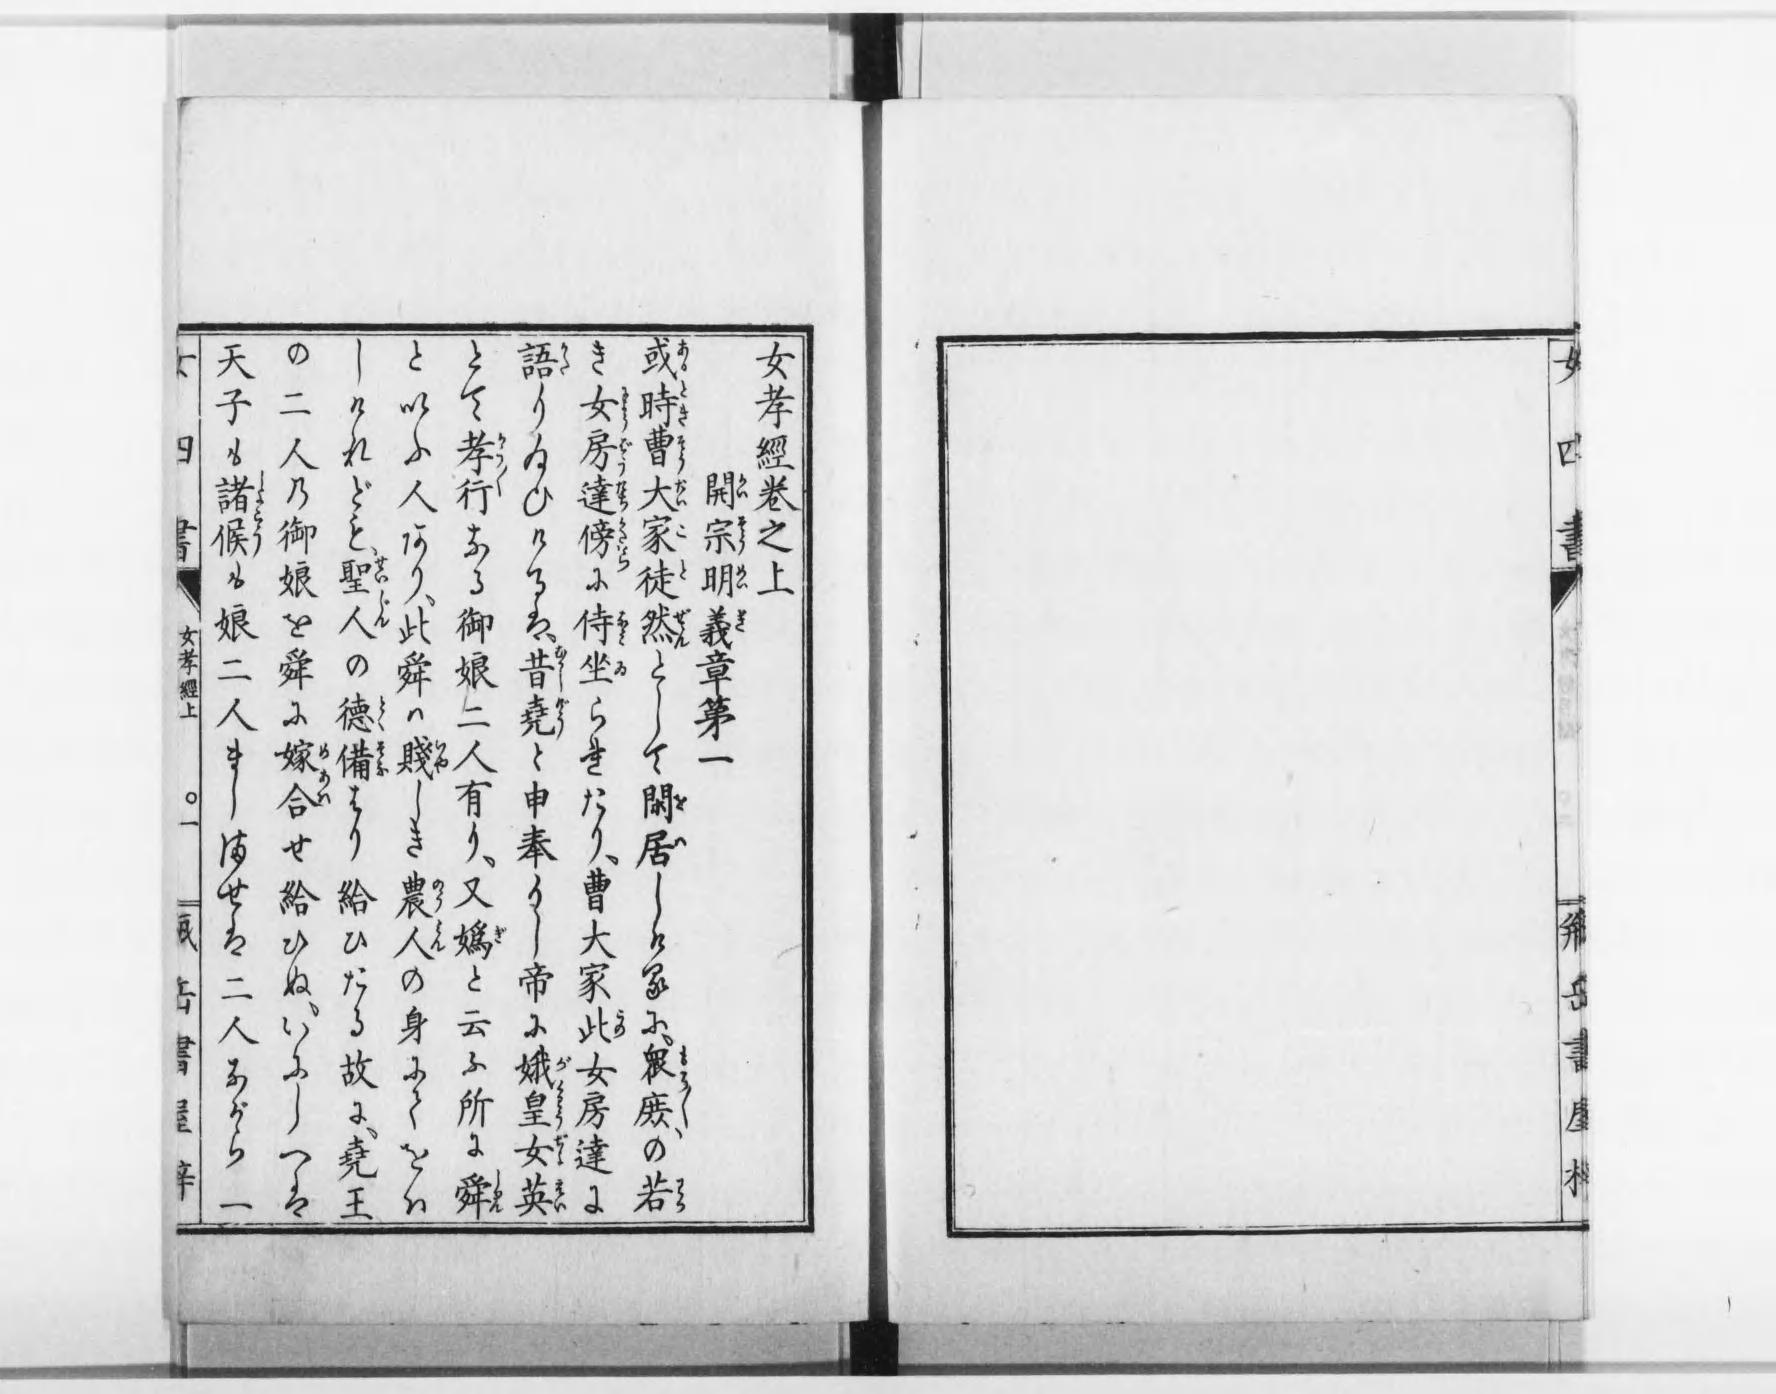 女孝經卷之上
開宗明義章第一
或時曹大家徒然として閑居しける に、衆庻の若
き女房達傍に侍坐られたり、曹大家此女房達に
語りゐひけるは、昔堯と申奉りし帝に娥皇女英
とて孝行なる御娘二人有り、又嬀と云ふ所に舜
と以ふ人あり、此舜ハ賤しき農人の身にてをハ
しけれども、聖人の德備はり給ひたる故に、堯王
の二人乃御娘を舜に嫁合せ給ひぬ、いにしへは
天子も諸候も娘二人まし満せは二人ながら一
女四書
女孝經上
〇一
甁岳書屋梓
女四書
甁岳書屋梓